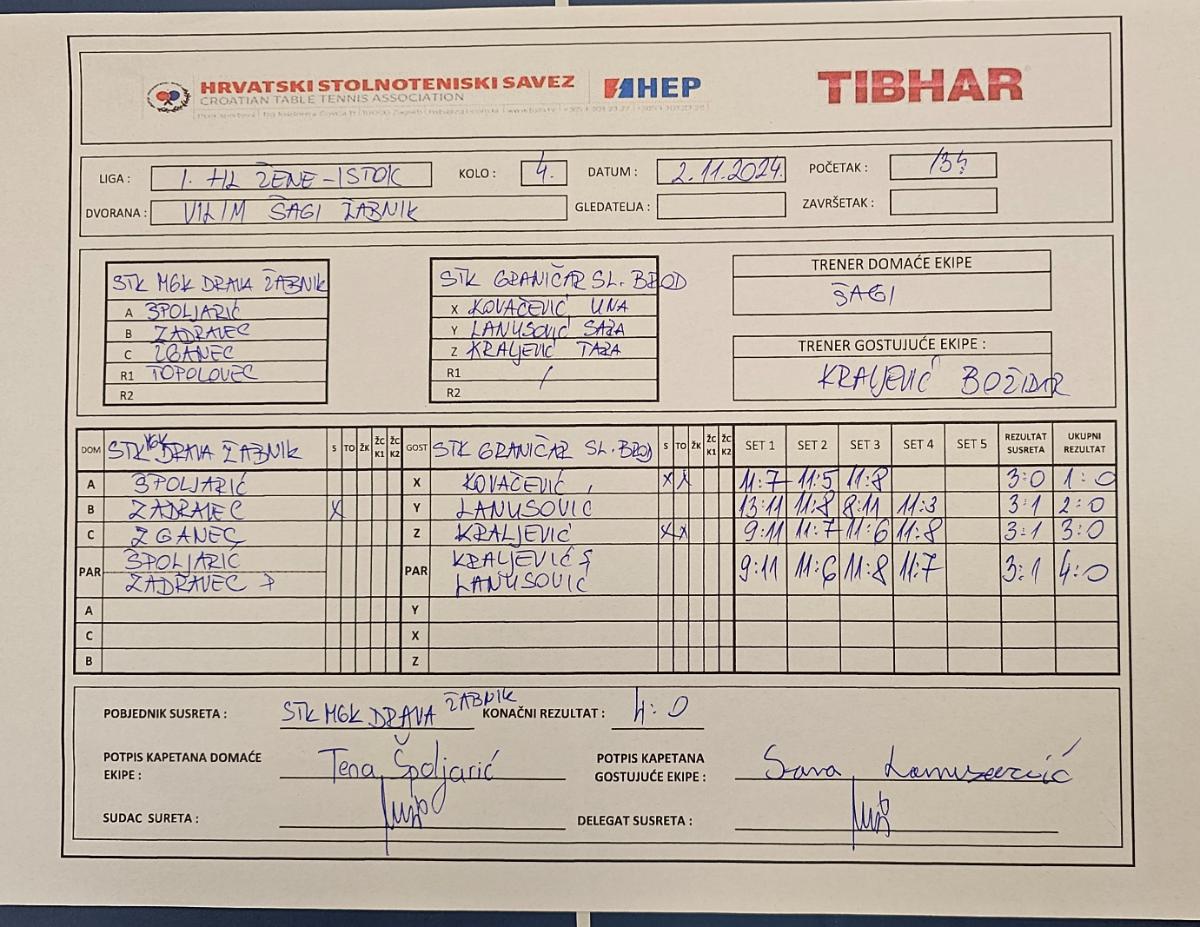 HRVATSKI STOLNOTENISKI SAVEZ
CROATIAN TABLE TENNIS ASSOCIATION
HEP
TIBHAR
LIGA : 1. HL ŽENE-ISTOK KOLO : 4. DATUM : 2.11.2024. POČETAK :
DVORANA : VILIM ŠAGI ŽABNIK GLEDATELJA : ZAVRŠETAK :
STK MGK DRAVA ŽABNIK
A ŠPOLJARIĆ
B ZADRAVEC
C ZGANEC
R1 TOPOLOVEC
R2
STK GRANIČAR SL. BROD
X KOVAČEVIĆ UNA
Y LANUSOVIĆ SARA
Z KRALJEVIĆ TARA
R1 /
R2
TRENER DOMAĆE EKIPE
ŠAGI
TRENER GOSTUJUĆE EKIPE :
KRALJEVIĆ BOŽIDAR
DOM STK MGK DRAVA ŽABNIK S TO ŽK ŽC K1 ŽC K2 GOST STK GRANIČAR SL. BROD S TO ŽK ŽC K1 ŽC K2 SET 1 SET 2 SET 3 SET 4 SET 5 REZULTAT SUSRETA UKUPNI REZULTAT
A ŠPOLJARIĆ X KOVAČEVIĆ X X 11:7 11:5 11:8 3:0 1:0
B ZADRAVEC X Y LANUSOVIĆ 13:11 11:8 8:11 11:3 3:1 2:0
C ZGANEC Z KRALJEVIĆ X X 9:11 11:7 11:6 11:8 3:1 3:0
PAR ŠPOLJARIĆ ZADRAVEC PAR KRALJEVIĆ LANUSOVIĆ 9:11 11:6 11:8 11:7 3:1 4:0
A Y
C X
B Z
POBJEDNIK SUSRETA : STK MGK DRAVA ŽABNIK KONAČNI REZULTAT : 4:0
POTPIS KAPETANA DOMAĆE EKIPE : Tena Špoljarić POTPIS KAPETANA GOSTUJUĆE EKIPE : Sara Lanusović
SUDAC SURETA : DELEGAT SUSRETA :